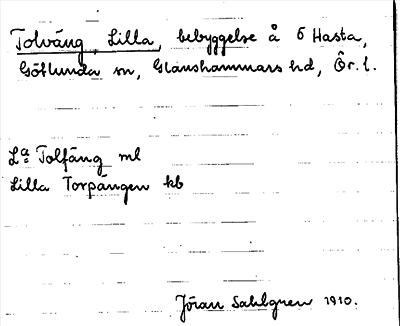 Tolväng, Lilla, bebyggelse å ö Hasta,
Götlunda sn, Glanshammars hd, Ör. l.
La Tolfäng ml
Lilla Torpängen kb
Jöran Sahlgren 1910.